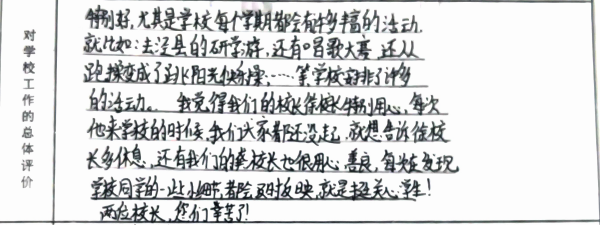 对学校工作的总体评价
特别好，尤其是学校每个学期都会有许多丰富的活动，
就比如：去泾县的研学游，还有唱歌大赛，还从
跑操变成了跳阳光体操，……等学校安排了许多
的活动。我觉得我们的校长徐校长特别用心，每次
他来学校的时候，我们大家都还没起，就想告诉徐校
长多休息，还有我们的龚校长也很用心，善良，每次在发现
学校同学的一些小细节，都会及时反映，就是挺关心学生！
两位校长，您们辛苦了！